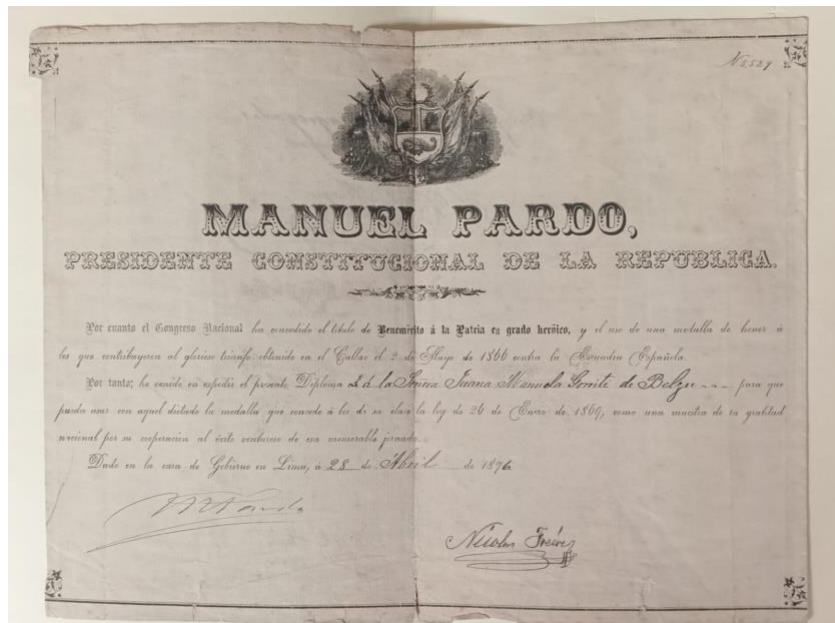 N 2,529
MANUEL PARDO,
PRESIDENTE CONSTITUCIONAL DE LA REPUBLICA.
Por cuanto el Congreso Nacional ha concedido el título de Benemérito á la Patria en grado heróico, y el uso de una medalla de honor á
los que contribuyeron al glorioso triunfo obtenido en el Callao el 2 de Mayo de 1866 contra la Escuadra Española.
Por tanto; he venido en expedir el presente Diploma á la Señora Juana Manuela Gorriti de Belzu para que
pueda usar con aquel dictado la medalla que concede á los de su clase la ley de 26 de Enero de 1869, como una muestra de la gratitud
nacional por su cooperacion al éxito venturoso de esa memorable jornada.
Dado en la casa de Gobierno en Lima, á 28 de Abril de 1876
M Pardo
Nicolas Freire